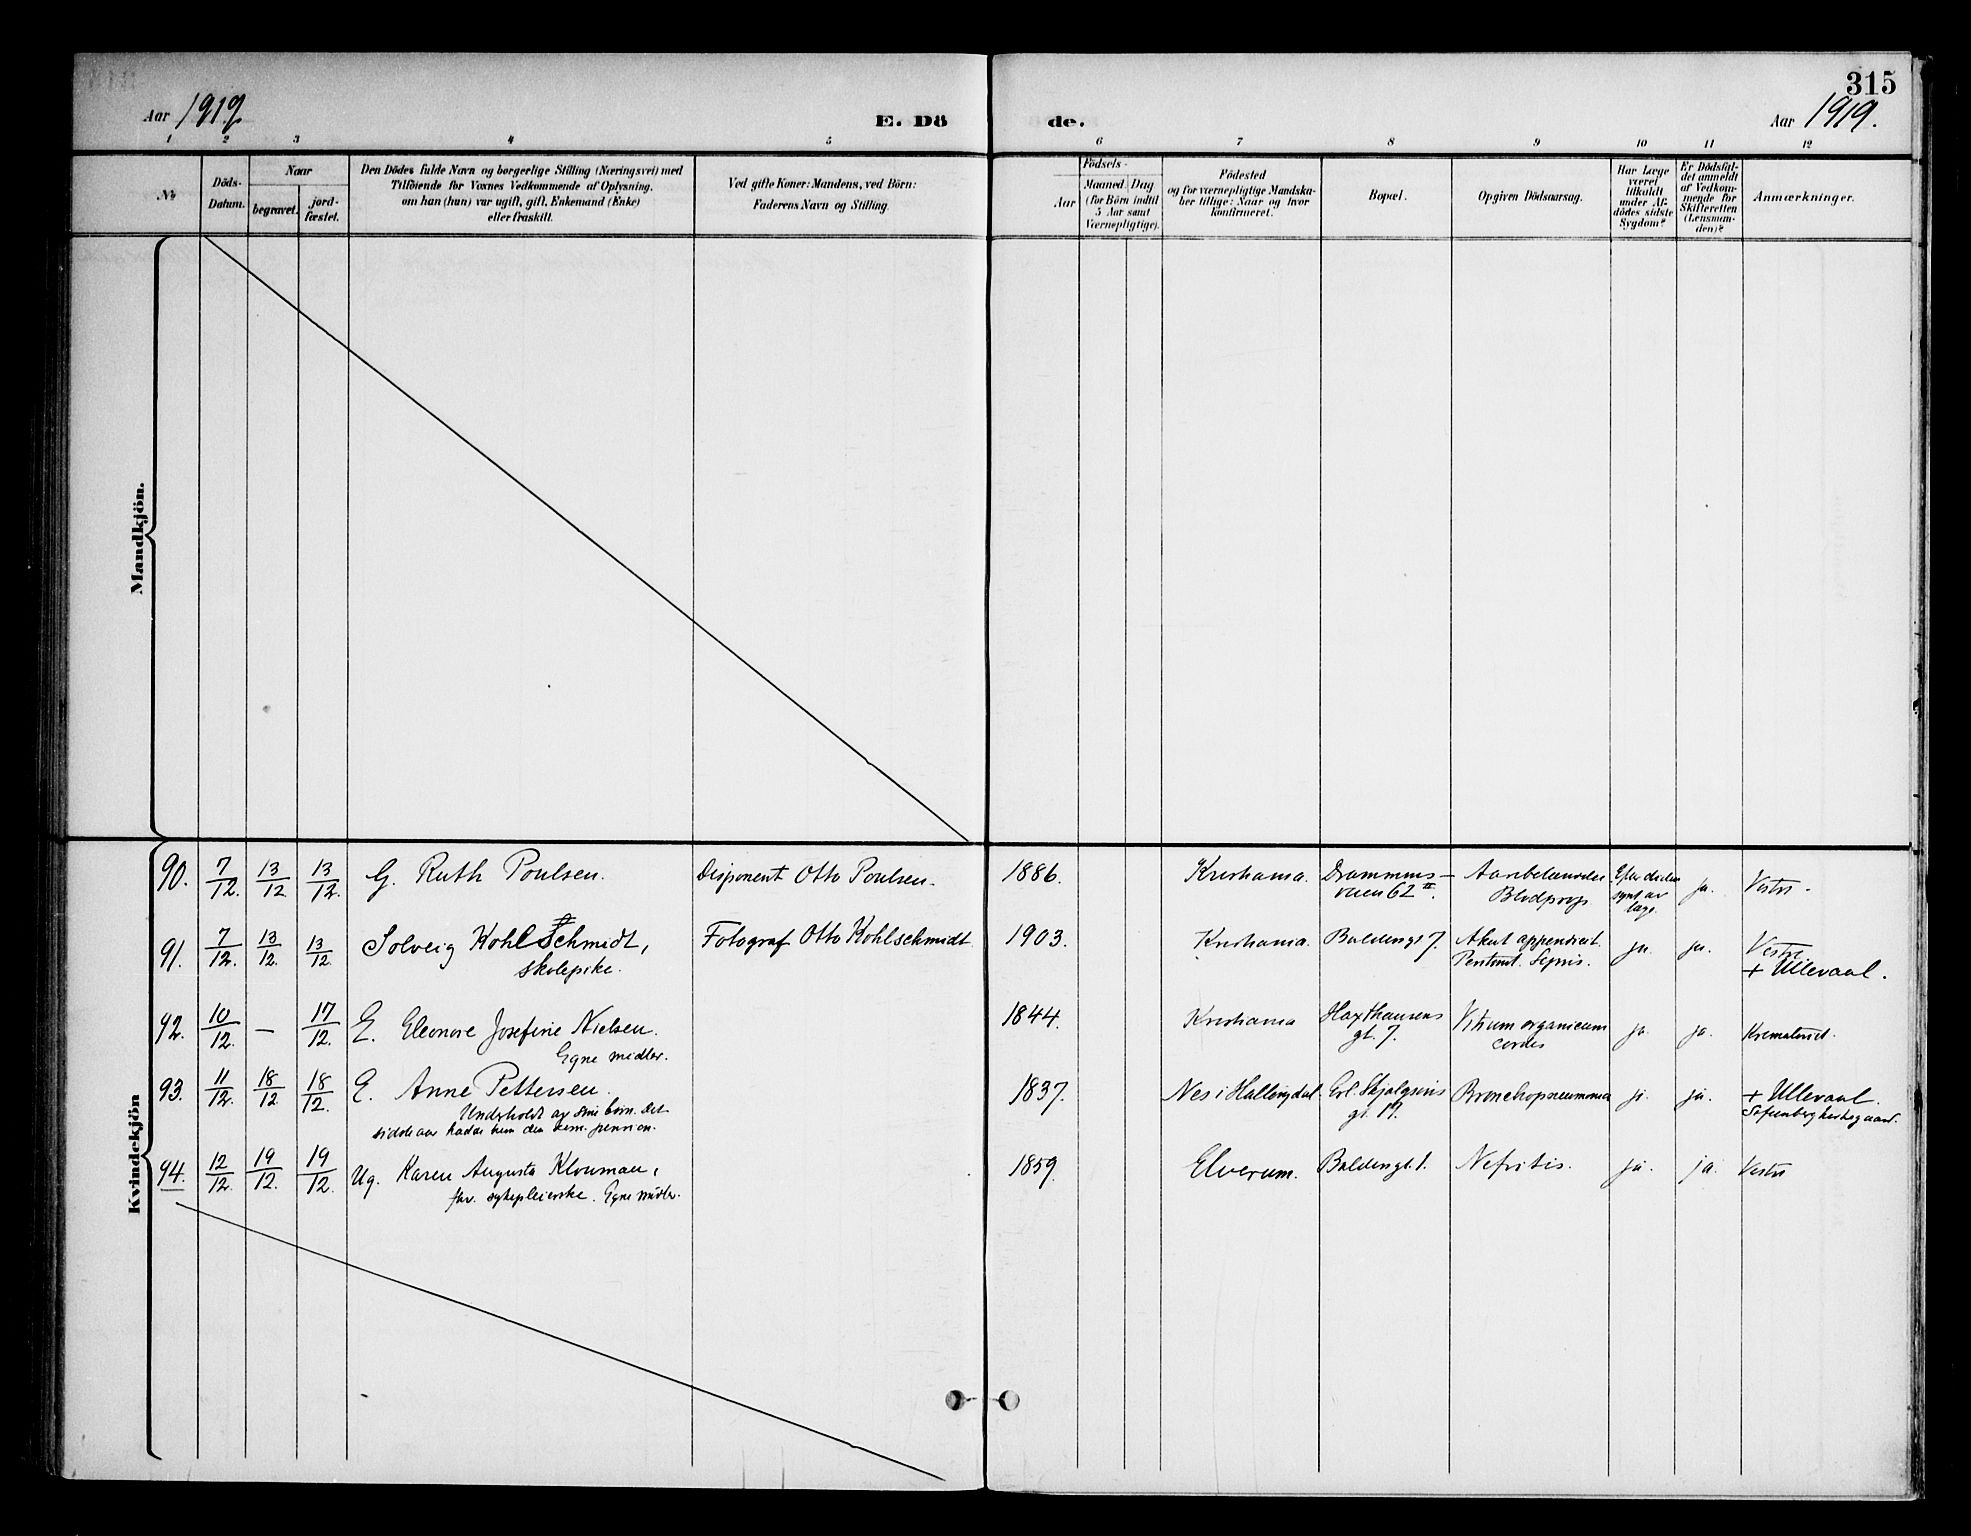 315
Aar 1919
E. Döde.
Aar 1919.
1 2 3 4 5 6 7 8 9 10 11 12
No
Döds-Datum.
Naar
begravet.
jord-fæstet.
Den Dödes fulde Navn og borgerlige Stilling (Næringsvei) med
Tilföiende for Voxnes Vedkommende af Oplysning,
om han (hun) var ugift, gift, Enkemand (Enke)
eller fraskilt.
Ved gifte Koner: Mandens, ved Börn:
Faderens Navn og Stilling.
Födsels-
Aar
Maaned Dag
(for Börn indtil
5 Aar samt
Værnepligtige).
Födested
og for værnepligtige Mandska-
ber tillige: Naar og hvor
konfirmeret.
Bopæl.
Opgiven Dödsaarsag.
Har Læge
været
tilkaldt
under Af-
dödes sidste
Sygdom?
Er Dödsfal-
det anmeldt
af Vedkom-
mende for
Skifteretten
(Lensman-
den)?
Anmærkninger.
Mandkjön.
Kvindekjön
90. 7/12. 13/12 13/12. G. Ruth Poulsen. Disponent Otto Poulsen. 1886. Kristiania. Drammens-
veien 62 II. Blodprop ja. Vestre.
91. 7/12. 13/12. 13/12. Solveig Kohlschmidt, Fotograf Otto Kohlschmidt 1903. Kristiania. Baldersgt 7. Akut appendicit. ja. ja. Vestre
skolepike. Peritonit. Sepsis. + Ullevaal.
92. 10/12. — 17/12. E. Eleonore Josefine Nielsen. 1844. Kristiania Haxthausens Vitium organicum ja. ja. Krematoriet.
Egne midler. gt. 7. cordis
93. 11/12. 18/12 18/12. E. Anne Pettersen. 1837. Nes i Hallingdal. Erl. Skjalgsøns Bronchopneumonia ja. ja. + Ullevaal.
Underholdt av sine børn. Det gt. 19.
sidste aar hadde hun den kom. pension.
94. 12/12. 19/12. 19/12. Ug. Karen Augusta Klouman, 1859. Elverum. Baldersgt. 1. Nefritis. ja. ja. Vestre
fhv. sykepleierske. Egne midler.